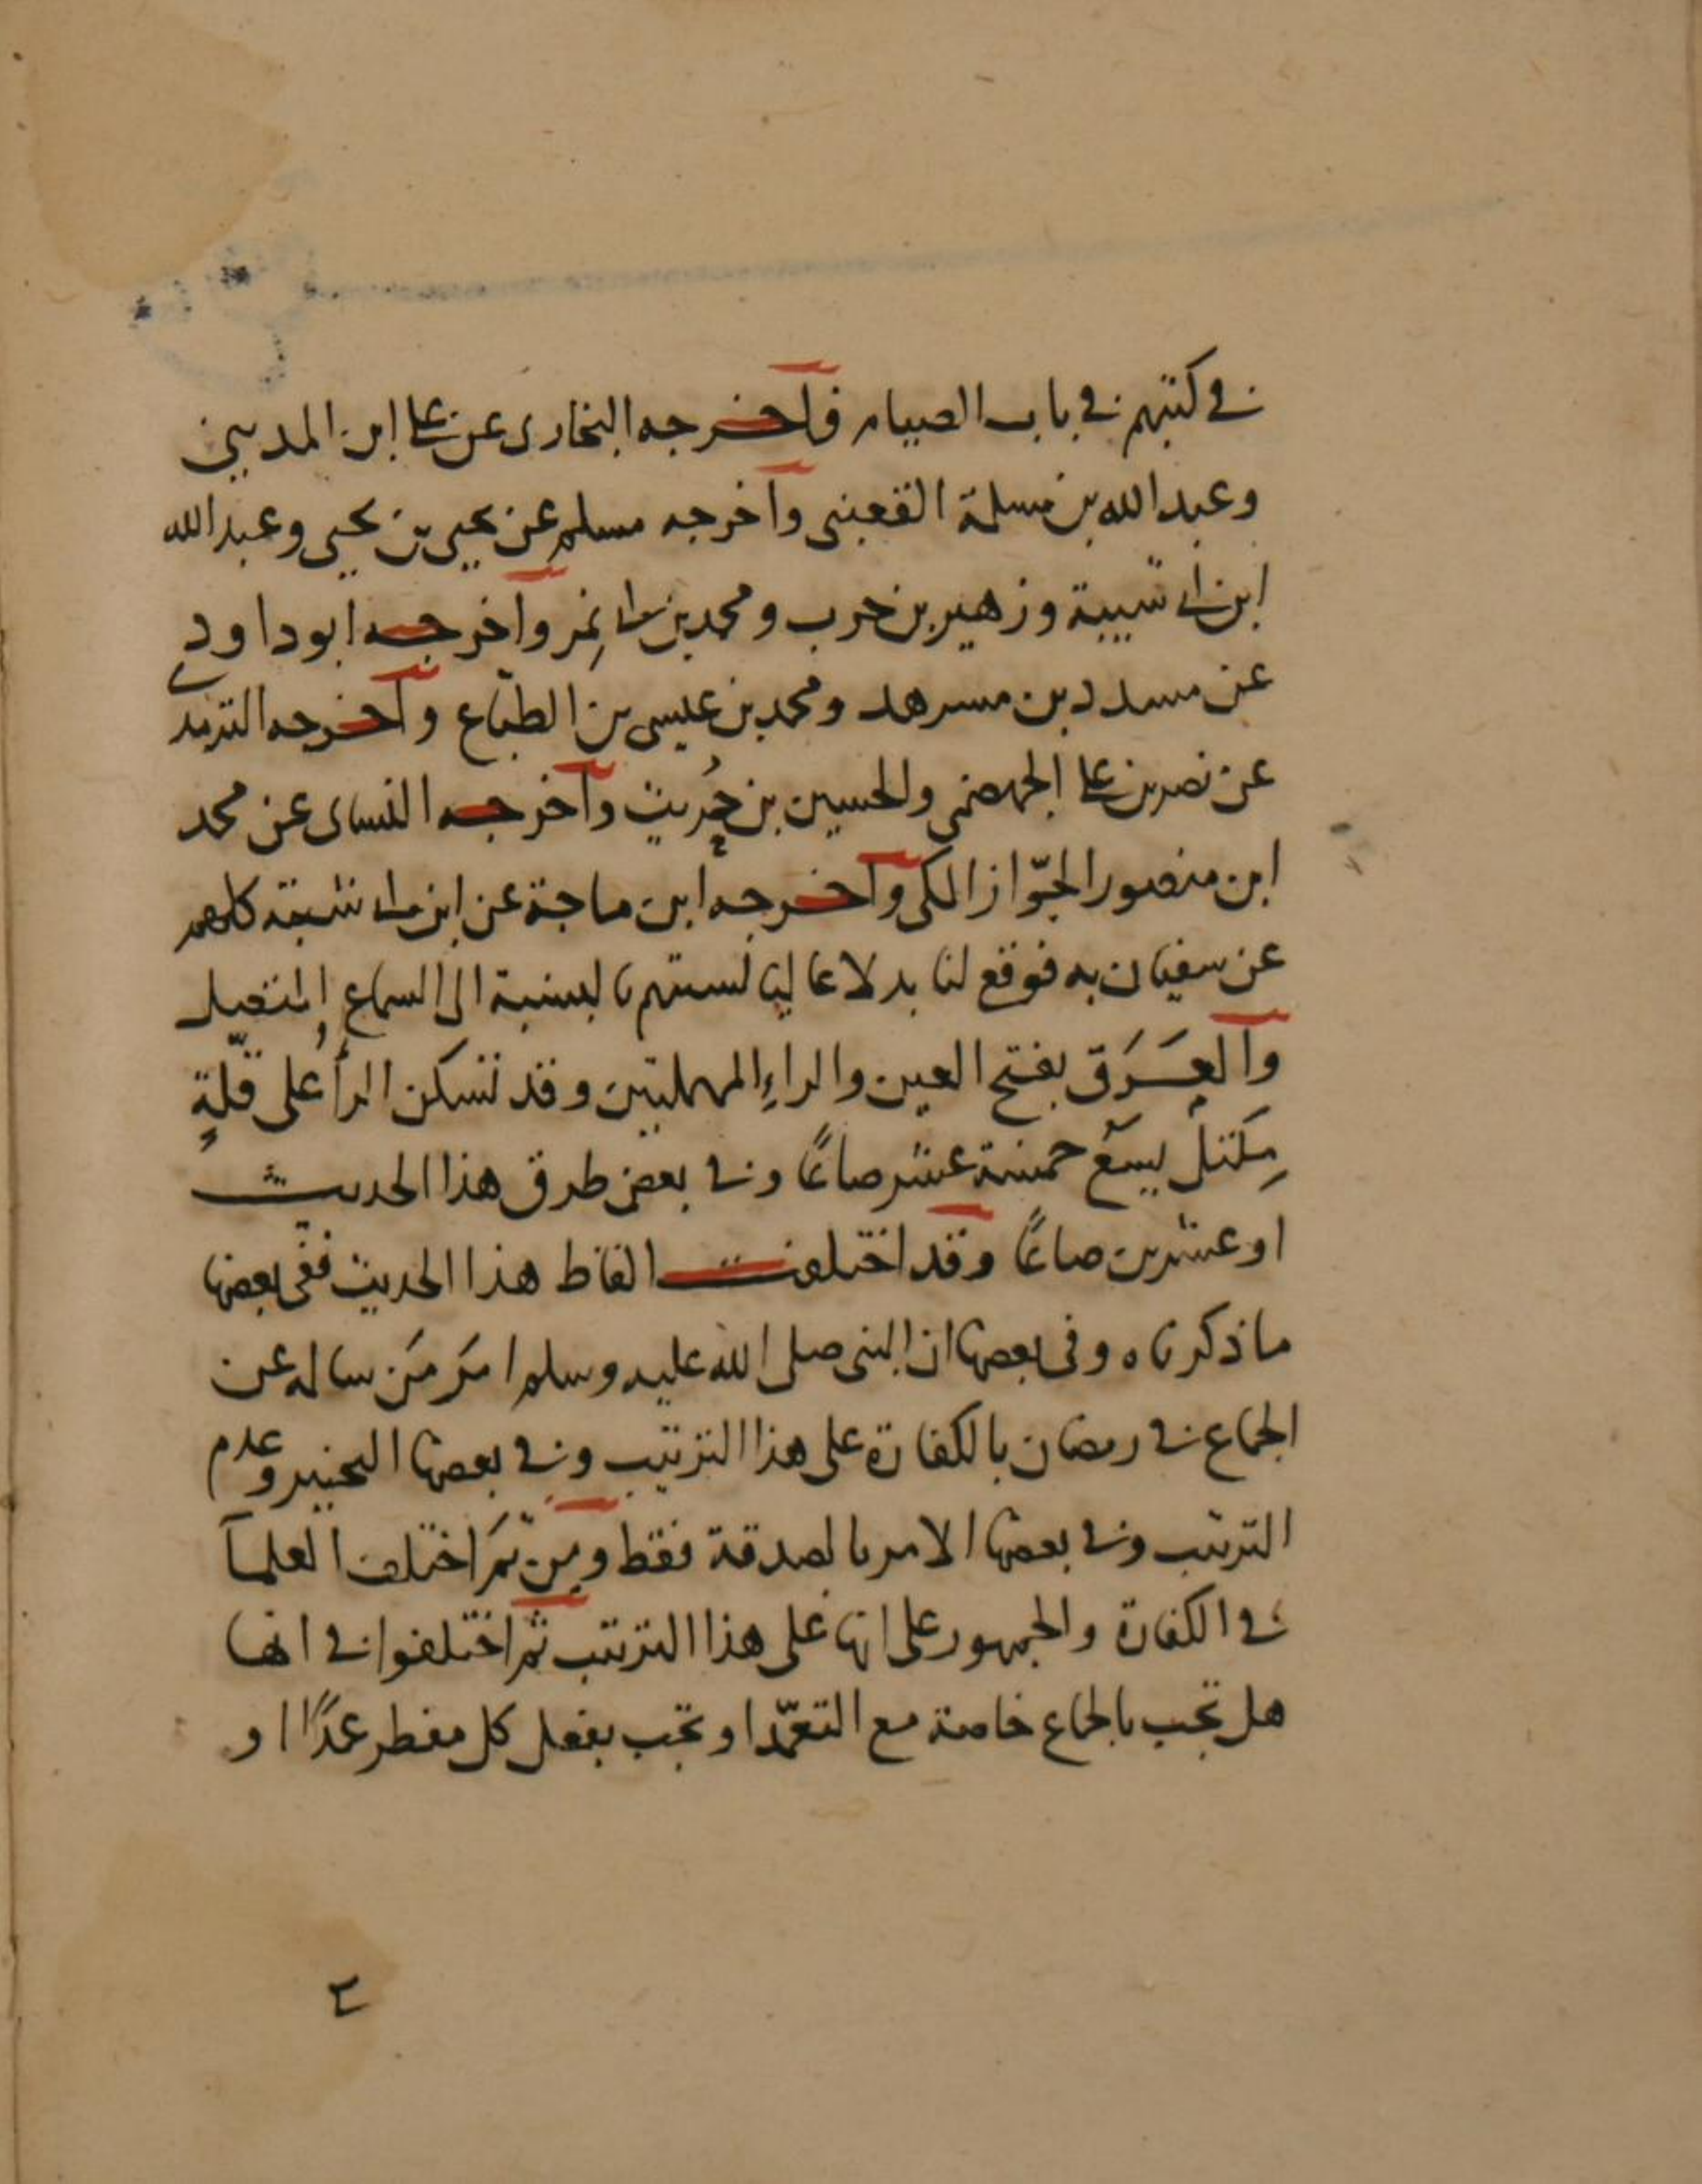 في كتبهم في باب الصيام فاخرجه البخاري عن علي ابن المديني
وعبد الله بن مسلمة القعنبي واخرجه مسلم عن يحيى بن يحيى وعبد الله
ابن ابي شيبة وزهير بن حرب ومحمد بن نمير واخرجه ابو داود
عن مسدد بن مسرهد ومحمد بن عيسى بن الطبّاع واخرجه الترمذي
عن نصر بن علي الجهضمي والحسين بن حُريث واخرجه النساى عن محمد
ابن منصور الجوّاز المكي واخرجه ابن ماجة عن ابن ابي شيبة كلهم
عن سفيان به فوقع لنا بدلا عاليا لستتهم بالنسبة الى السماع المتصل
والعَرَق بفتح العين والراءِ المهملتين وقد تسكن الرأ على قلّةٍ
مِكتل يسع خمسة عشر صاعًا وفي بعض طرق هذا الحديث
او عشرين صاعًا وقد اختلفت الفاظ هذا الحديث ففي بعضها
ما ذكرناه وفي بعضها ان النبي صلى الله عليه وسلم امَر مَن ساله عن
الجماع في رمضان بالكفارة على هذا الترتيب وفي بعضها التخيير وعدم
الترتيب وفي بعضها الامر بالصدقة فقط ومِن ثَمّ اختلف العلمآ
في الكفارة والجمهور على انها على هذا الترتيب ثم اختلفوا في انها
هل تجب بالجماع خاصة مع التعمّد او تجب بفعل كل مفطر عمدًا او
٢